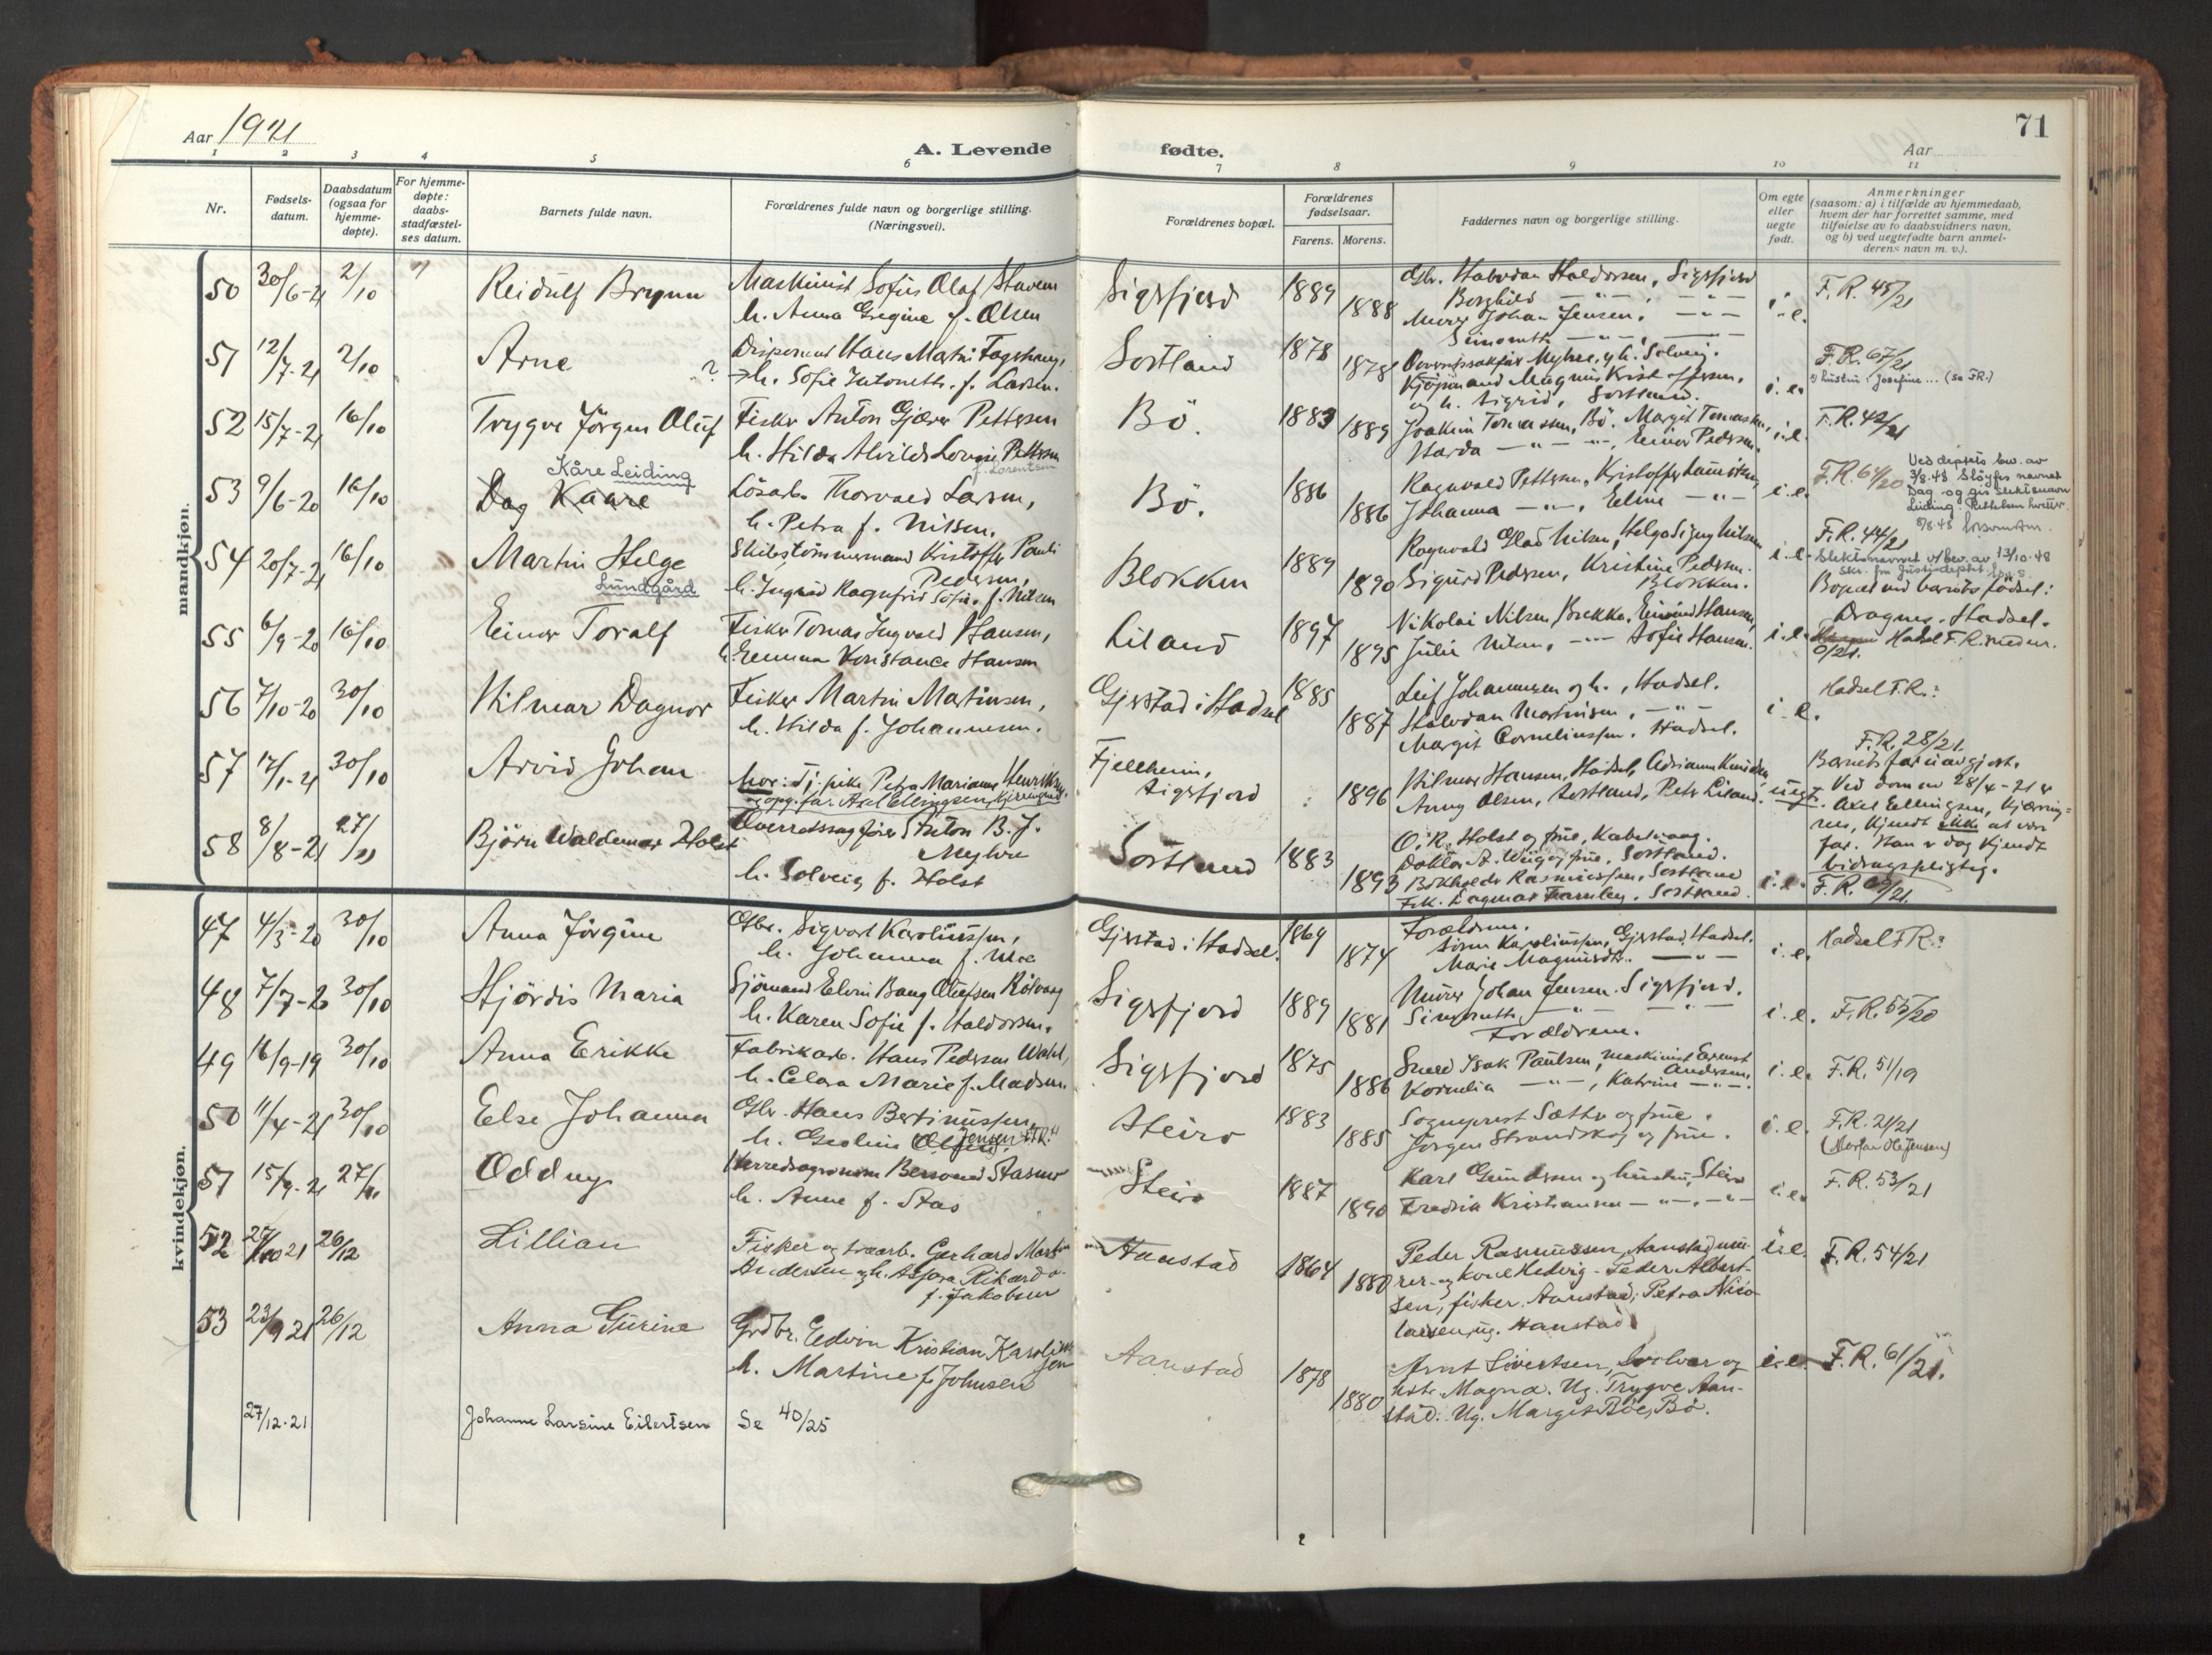 Aar 1921
A. Levende
fødte.
71
Aar
1 2 3 4 5 6 7 8 9 10 11
Nr.
Fødsels-
datum.
Daabsdatum
(ogsaa for
hjemme-
døpte).
For hjemme-
døpte:
daabs-
stadfæstel-
ses datum.
Barnets fulde navn.
Forældrenes fulde navn og borgerlige stilling.
(Næringsvei).
Forældrenes bopæl.
Forældrenes
fødselsaar.
Farens. Morens.
Faddernes navn og borgerlige stilling.
Om egte
eller
uegte
født.
Anmerkninger
(saasom: a) i tilfælde av hjemmedaab,
hvem der har forrettet samme, med
tilføielse av to daabsvidners navn,
og b) ved uegtefødte barn anmel-
derens navn m. v.).
mandkjøn.
50 30/6-21 2/10 Reidulf Brynn
Maskinist Sofus Olaf Stavem
h. Anna Gregine f. Olsen
Sigfjord 1889 1888
Gbr. Halvdan Haldorsen, Sigfjord
Borghild — " — , — " —
Murer Johan Jensen, — " —
i.e. F.R. 45/21
51 12/7-21 2/10 Arne ?
Disponent Hans Martin Fagerhaug,
h. Sofie Antonette f. Larsen.
Sortland 1878 1878
Overretssakfør Myhre og h. Solveig.
Kjøpmand Magnus Kristoffersen,
og h. Sigrid, Sortland.
i.e. F.R. 67/21
hustru: Josefine... (se FR.)
52 15/7-21 16/10 Trygve Jörgen Oluf
Fisker Anton Gjæver Pettersen
h. Hilda Alvilde Lovise Pettersen
f. Lorentsen
Bö. 1883 1889
Joakim Tomassen, Bö. Margit Tomassen,
Harda — " — " —, Einar Pedersen.
i.e. F.R. 42/21
53 9/6-20 16/10 Dag Kaare
Kåre Leiding
Lösarb. Thorvald Larsen,
h. Petra f. Nilsen.
Bö. 1886 1886
Ragnvald Pettersen, Kristoffer Lauritsen
Johanna — " —, Eline — " —
i.e. F.R. 64/20
Ved deptets bev. av
3/8.48 slöyfes navnet
Dag og gis slektsnavn
Leiding.
54 20/7-21 16/10 Martin Helge
Lundgård
Skibstömmermand Kristoffer Pauli
Pedersen,
h. Ingrid Ragnfrid Sofie f. Nilsen
Blokken 1889 1890
Ragnvald Olaf Nilsen, Helga Signy Nilsen
Sigurd Pedersen, Kristine Pedersen.
Blokken.
i.e. F.R. 44/21
Slektsnavnet v/bev. av 13/10.48
Skr. fra Justisdeptet
55 6/9-20 16/10 Einar Toralf
Fisker Tomas Ingvald Hansen,
h. Emma Konstance Hansen
Liland 1897 1895
Nikolai Nilsen, Brekka, Edvind Hansen,
Julie Nilsen, — " — Sofie Hansen.
i.e.
Bopæl ved barnets fødsel:
Dragnes, Hadsel.
Hadsel F.R.
56 7/10-20 30/10 Hilmar Dagnor
Fisker Martin Matinsen,
h. Hilda f. Johannesen.
Gjerstad i Hadsel 1885 1887
Leif Johannesen og h., Hadsel.
Halvdan Martinsen, — " —
Margit Corneliussen, Hadsel.
i.e. Hadsel F.R.:
57 17/1-21 30/10 Arvid Johan
Mor: Tj. pike Petra Mariane Henriksen
opg. far. Axel Ellingsen, Kjerringnes
Fjellheim,
Sigfjord 1896
Hilmar Hansen, Hadsel, Adrianne Knudsen,
Anny Olsen, Sortland, Petr Liland.
uegt.
F.R. 28/21.
Barnets far uavgjort.
Ved dom av 28/4-21 er
Axel Ellingsen, Kjærring-
nes, kjendt ikke at være
far. Han er dog kjendt
bidragspligtig.
58 8/8-21 27/11 Björn Waldemar Holst
Overretssagfører Anton B. J.
Myhre
h. Solveig f. Holst
Sortland 1883 1893
O. R. Holst og frue, Kabelvaag.
Doktor A. Wiig og frue, Sortland.
Bokholder Rasmussen, Sortland
Frk. Dagmar Fearnley, Sortland.
i.e. F.R. 69/21.
kvindekjøn.
47 4/3-20 30/10 Anna Jörgine
Gbr. Sigvart Karoliussen,
h. Johanna f. Moe
Gjerstad i Hadsel. 1869 1874
Forældrene.
Sören Karoliussen, Gjerstad, Hadsel.
Marie Magnusdtr. — " —
i.e. Hadsel F.R.:
48 7/7-20 30/10 Hjördis Maria
Sjömand Elvin Bang Olufsen Kölvaag
h. Karen Sofie f. Haldorsen.
Sigfjord 1889 1881
Murer Johan Jensen, Sigfjord.
Forældrene.
i.e. F.R. 55/20
49 16/9-19 30/10 Anna Erikke
Fabrikarb. Hans Pedersen Wahl,
h. Celara Marie f. Madsen
Sigfjord 1875 1886
Smed Isak Paulsen, maskinist Ernst
Andersen
Kornelia — " —, Katrine — " —.
i.e. F.R. 51/19
50 11/4-21 30/10 Else Johanna
Gbr. Hans Bertinussen,
h. Geoline Olsen
Jensen "F.R."
Steiro 1883 1885
Sogneprest Sæther og frue.
Jörgen Strandskog og frue.
i.e. F.R. 21/21
(Morfar Ole Jensen)
51 15/9-21 27/11 Oddny
Herredsagronom Bersvend Stasnes
h. Anne f. Stas
Steiro 1887 1890
Karl Gundersen og hustru, Steiro
Fredrik Kristiansen — " —, — " —
i.e. F.R. 53/21
52 27/10 21 26/12 Lillian
Fisker og traarb. Gerhard Martin
Andersen og h. Asfora Rikarda
f. Jakobsen
Aanstad 1864 1880
Peder Rasmussen, Aanstad mu-
rer og kone Hedvig - Peder Albert-
sen, fisker, Aanstad; Petra Nico-
laisen, ug. Aanstad
i.e. F.R. 54/21
53 23/9 21 26/12 Anna Gurine
Grdbr. Edvin Kristian Karolius-
sen
h. Martine f. Johnsen
Aanstad 1878 1880
Arnt Sivertsen, Svolvær og
hstr. Magna. Ug. Trygve Aan-
stad. Ug. Margit Böe, Bö.
i.e. F.R. 61/21.
27/12-21 Johanne Larsine Eilertsen Se 40/25